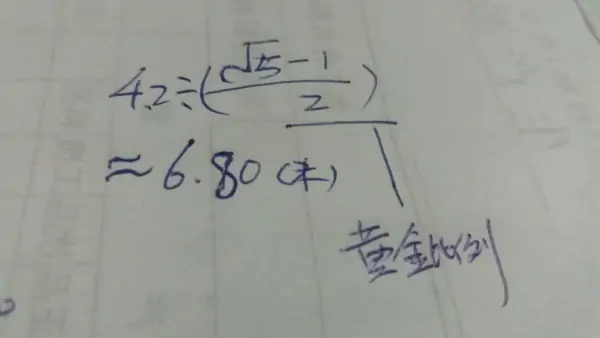 4.2÷(√5-1/2)
≈6.80(米)
黄金比例